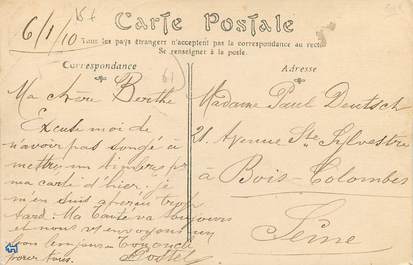 6/1/10
Carte Postale
Tous les pays étrangers n'acceptent pas la correspondance au recto
Se renseigner à la poste.
Correspondance
Ma chère Berthe
Excuse moi de
n'avoir pas songé à
mettre un timbre pr
ma carte d'hier. je
m'en suis aperçu trop
tard. Ma Tante va toujours
et nous vs envoyons un
bon bonjour
pour tous.
Adresse
Madame Paul Deutsch
21. Avenue Ste Sylvestre
à Bois-Colombes
Seine